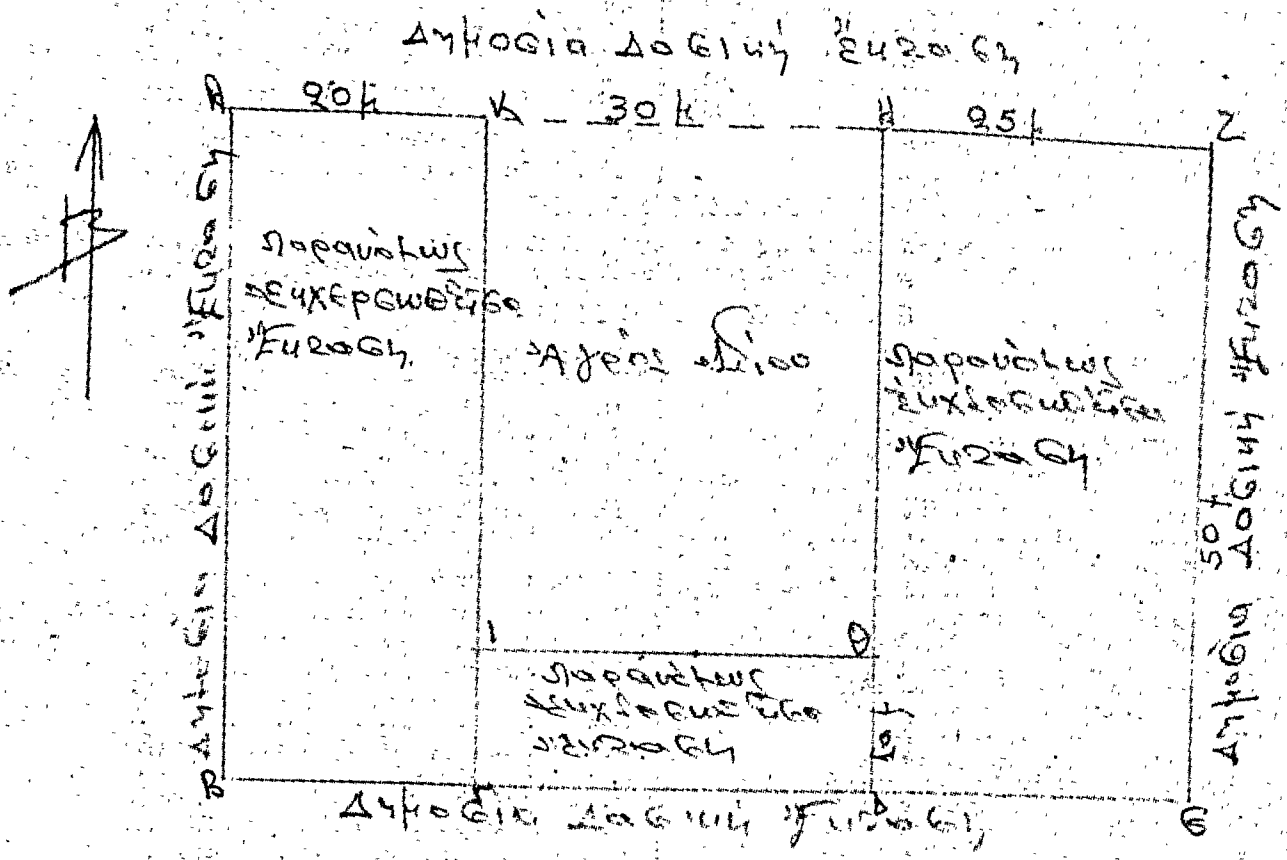 Δημοσία Δασική Ἔκτασις
Α 20μ Κ 30μ Η 25μ Ζ
Δημοσία Δασική Ἔκτασις
Παρανόμως
ἐκχερσωθεῖσα
Ἔκτασις
Ἀγρὸς
Παρανόμως
Ἔκτασις
50μ
Δημοσία Δασική Ἔκτασις
Ι Θ
Παρανόμως
ἔκτασις
Β Γ Δ Ε
Δημοσία Δασική Ἔκτασις